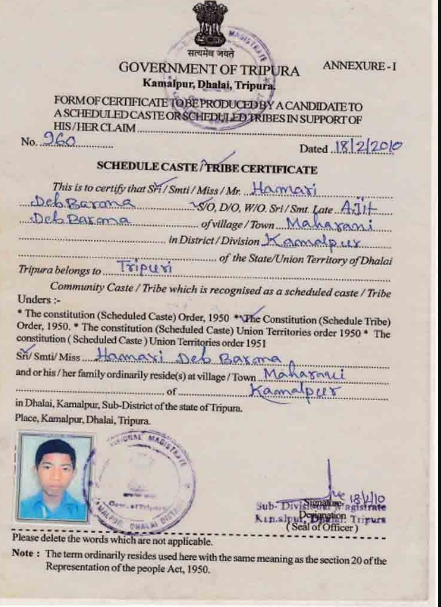 सत्यमेव जयते
GOVERNMENT OF TRIPURA
ANNEXURE - I
Kamalpur, Dhalai, Tripura.
FORM OF CERTIFICATE TO BE PRODUCED BY A CANDIDATE TO
A SCHEDULED CASTE OR SCHEDULED TRIBES IN SUPPORT OF
HIS / HER CLAIM
No. 960 Dated 18/2/2010
SCHEDULE CASTE / TRIBE CERTIFICATE
This is to certify that Sri / Smti / Miss / Mr. Hamari
Deb Barma S/O, D/O, W/O. Sri / Smt. Late Ajit
Deb Barma of village / Town Maharani
in District / Division Kamalpur
of the State/Union Territory of Dhalai
Tripura belongs to Tripuri
Community Caste / Tribe which is recognised as a scheduled caste / Tribe
Unders :-
* The constitution (Scheduled Caste) Order, 1950 * The Constitution (Schedule Tribe)
Order, 1950. * The constitution (Scheduled Caste) Union Territories order 1950 * The
constitution ( Scheduled Caste ) Union Territories order 1951
Sri/ Smti/ Miss Hamari Deb Barma
and or his / her family ordinarily reside(s) at village / Town Maharani
of Kamalpur
in Dhalai, Kamalpur, Sub-District of the state of Tripura.
Place, Kamalpur, Dhalai, Tripura.
MAGISTRATE
18/2/10
Signature
Sub- Divisional Magistrate
Designation
Kamalpur, Dhalai Tripura
( Seal of Officer )
Please delete the words which are not applicable.
Note : The term ordinarily resides used here with the same meaning as the section 20 of the
Representation of the people Act, 1950.